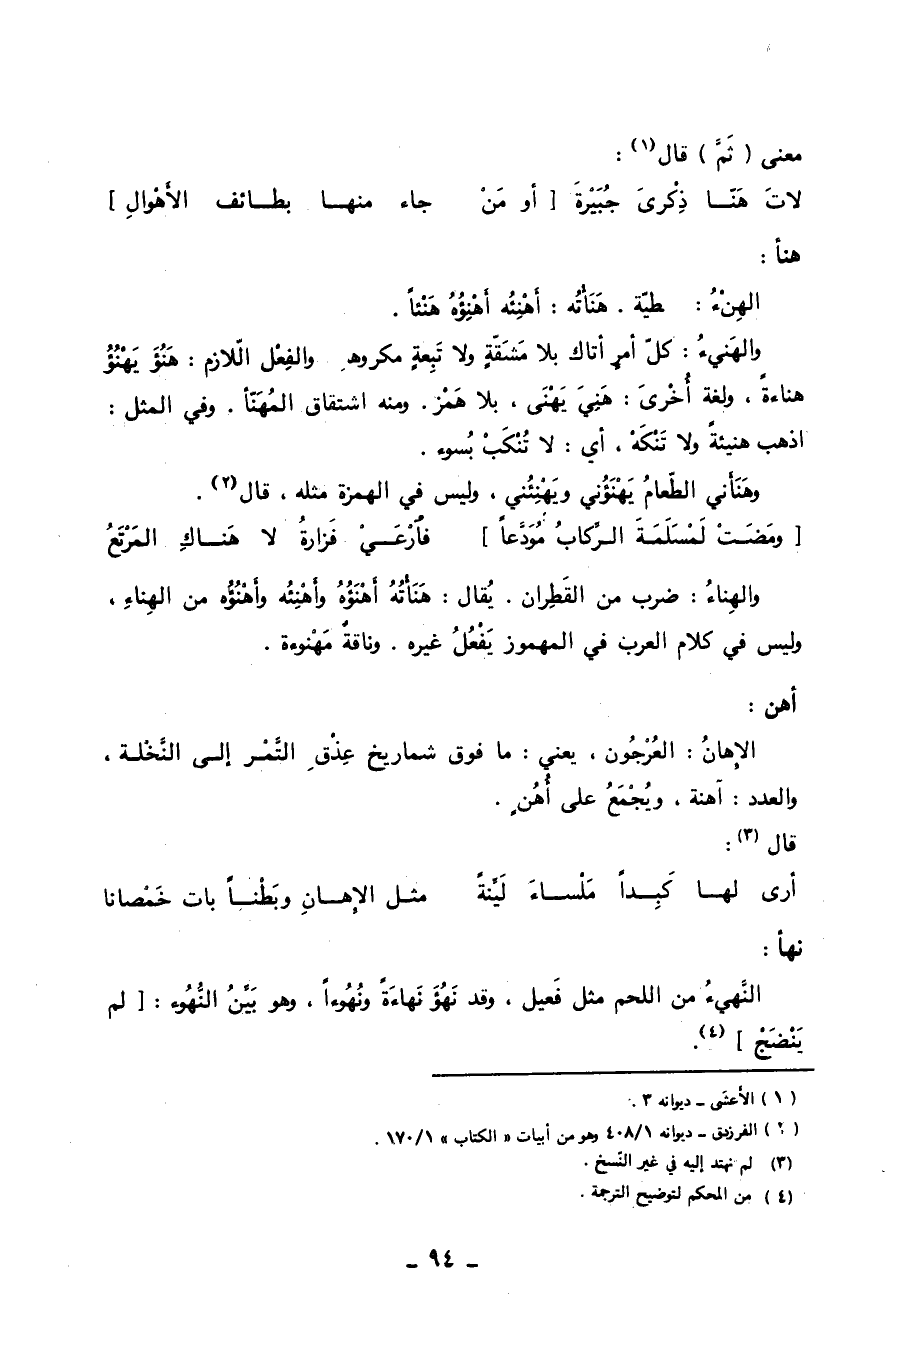 معنى ( ثَمَّ ) قال(١) :
لاتَ هَنّـا ذِكْرىَ جُبَيْرةَ [ أو مَنْ جاء منهـا بطـائف الأهْوالِ ]
هنأ :
الهِنْءُ : طيّة . هَنَأتُه : أَهْنِئُه أَهْنِؤُهُ هَنْئاً .
والهَنيءُ : كلّ أمرٍ أتاك بلا مَشَقّةٍ ولا تَبِعةٍ مكروهٍ والفِعْل الّلازم : هَنُؤَ يَهْنُؤُ
هناءةً ، ولغة أُخْرىَ : هَنِيَ يَهْنَى ، بلا هَمْز . ومنه اشتقاق المُهَنّأ . وفي المثل :
اذهب هنيئةً ولا تَنْكَهْ ، أي : لا تُنْكَبْ بُسوء .
وهَنَأني الطّعامُ يَهْنَؤُني ويَهْنِئُني ، وليس في الهمزة مثله ، قال(٢) .
[ ومَضَتْ لَمْسَلَمَةَ الـرِّكابُ مُوَدَّعاً ] فأرْعَـيْ فَزارةُ لا هَنـاكِ المَرْتَعُ
والهِناءُ : ضرب من القَطِران . يُقال : هَنَأتُهُ أَهْنَؤُهُ وأَهْنِئُه وأَهْنُؤُه من الهِناءِ ،
وليس في كلام العرب في المهموز يَفْعُلُ غيره . وناقةٌ مَهْنوءة .
أهن :
الإهانُ : العُرْجُون ، يعني : ما فوق شماريخ عِذْقِ التَّمْر إلى النَّخْلة ،
والعدد : آهنة ، ويُجْمَعُ على أُهُنٍ .
قال (٣) :
أرى لهـا كَبِـداً مَلْسـاءَ لَيِّنةً مثـل الإهـانِ وبَطْنـاً بات خَمْصانا
نهأ :
النَّهيءُ من اللحم مثل فَعيل ، وقد نَهُؤَ نَهاءَةً ونُهُوءاً ، وهو بَيِّنُ النُّهُوء : [ لم
يَنْضَجْ ] (٤).
( ١ ) الأعشى ــ ديوانه ٣ .
( ٢ ) الفرزدق ــ ديوانه ٤٠٨/١ وهو من أبيات « الكتاب » ١٧٠/١ .
(٣) لم نهتد إليه في غير النّسخ .
(٤ ) من المحكم لتوضيح الترجمة .
ــ ٩٤ ــ